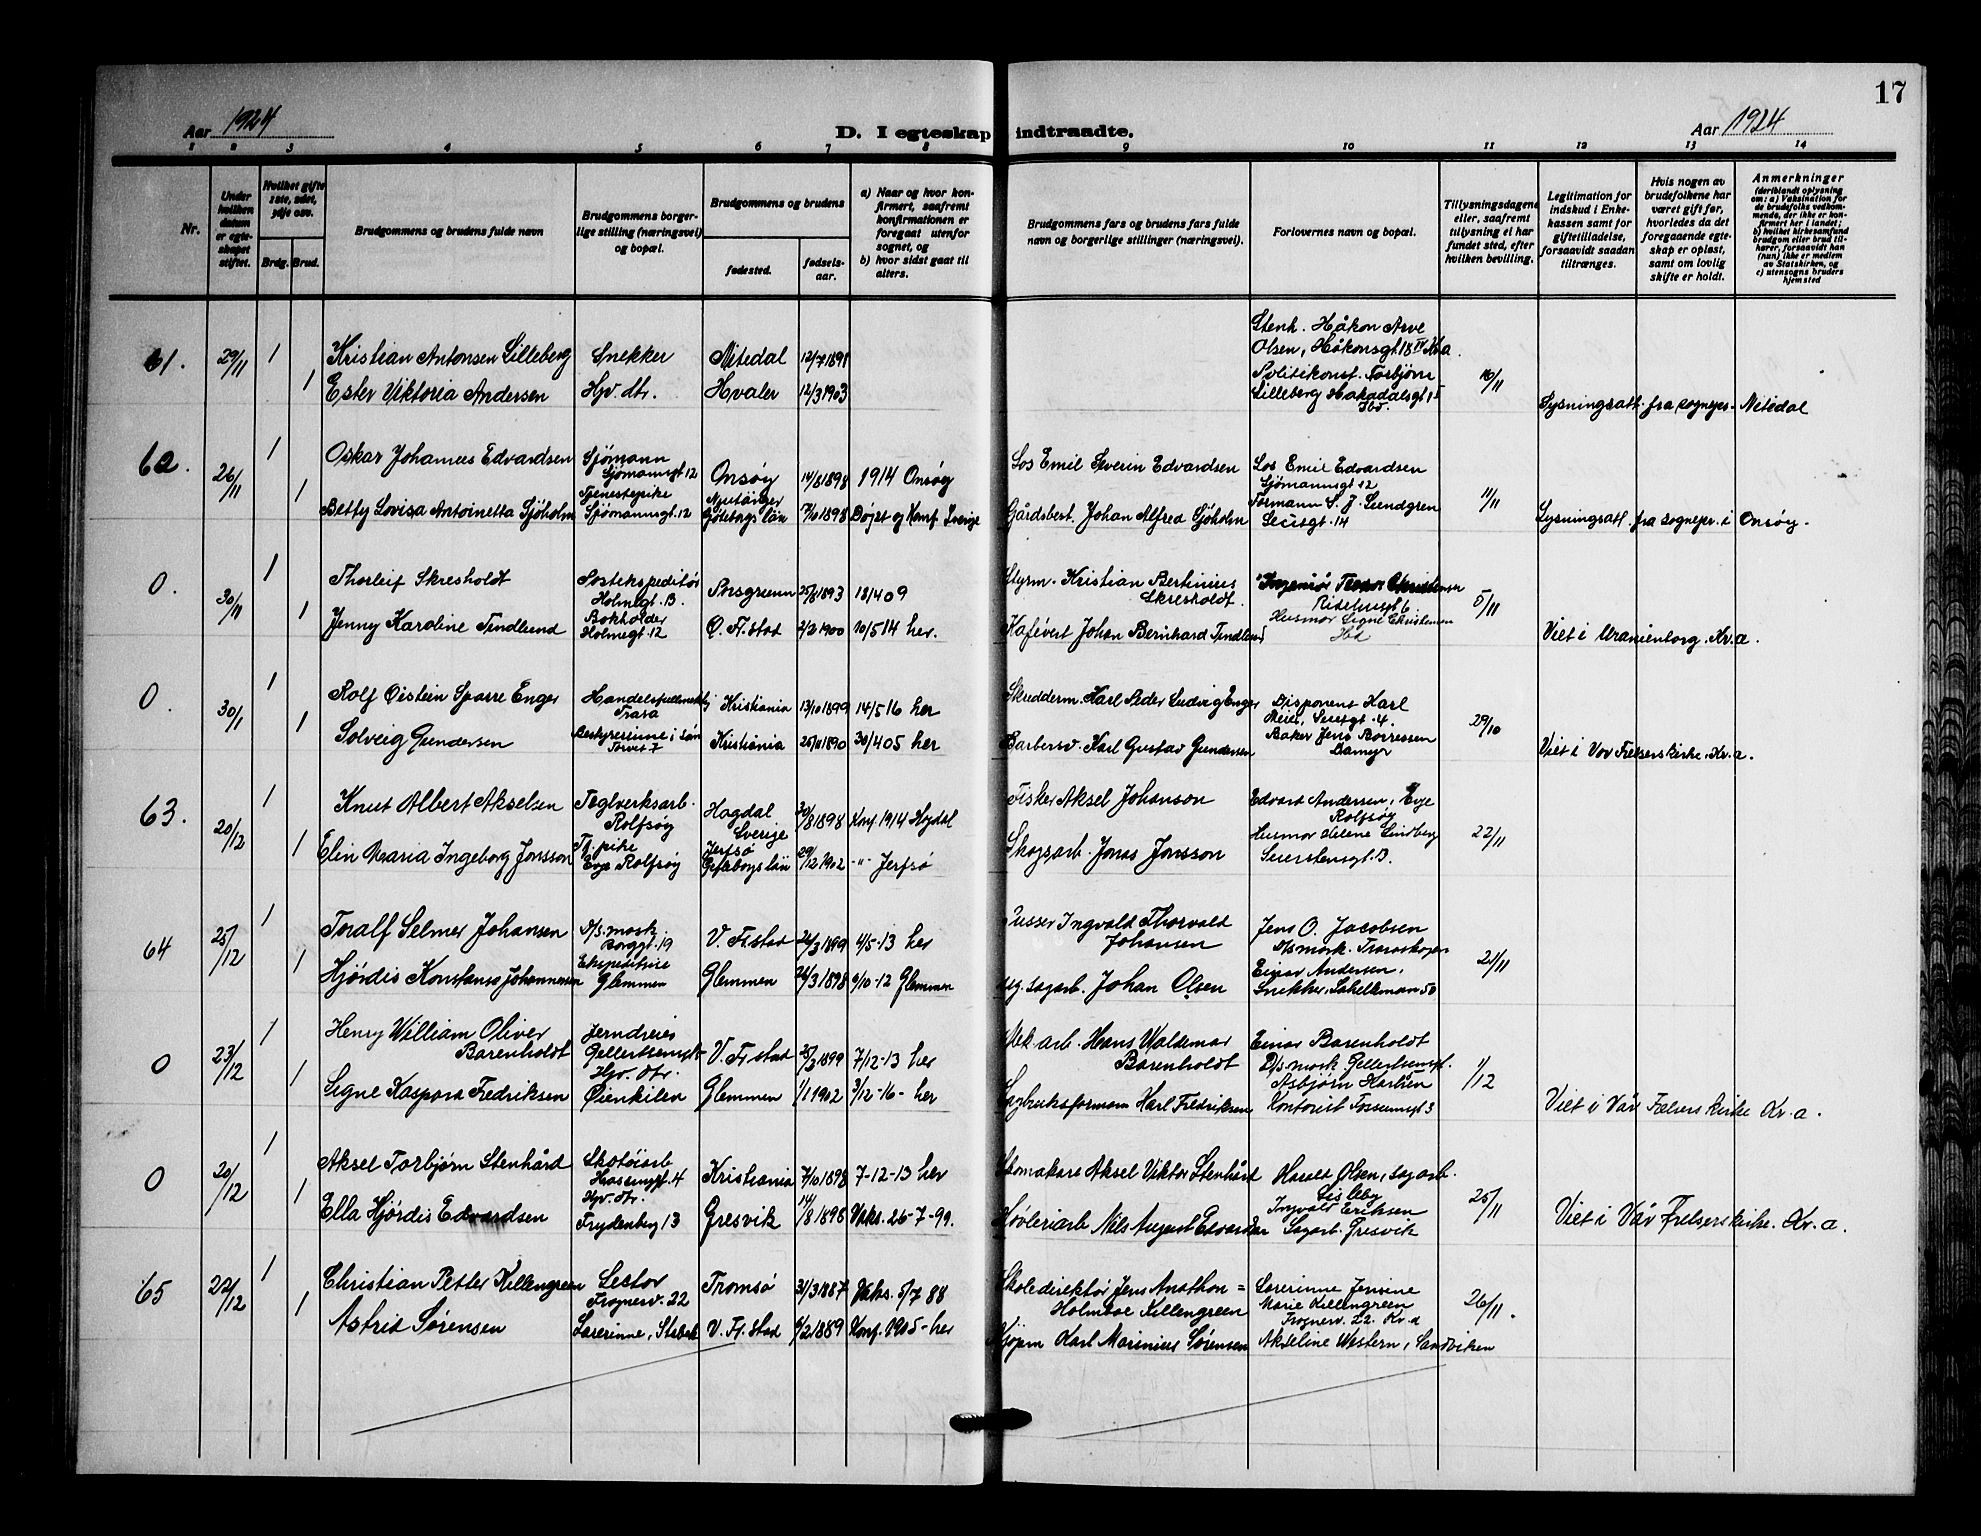 17
Aar 1924
D. I egteskap indtraadte.
Aar 1924
1 2 3 4 5 6 7 8 9 10 11 12 13 14
Nr.
Under hvilken datum er egteskapet stiftet.
Hvilket gifte 1ste, 2det, 3dje osv.
Brdg. Brud.
Brudgommens og brudens fulde navn
Brudgommens borgerlige stilling (næringsvei) og bopæl.
Brudgommens og brudens
fødested.
fødselsaar.
a) Naar og hvor konfirmert, saafremt konfirmationen er foregaat utenfor sognet, og
b) hvor sidst gaat til alters.
Brudgommens fars og brudens fars fulde navn og borgerlige stillinger (næringsvei).
Forlovernes navn og bopæl.
Tillysningsdagene eller, saafremt tillysning ei har fundet sted, efter hvilken bevilling.
Legitimation for indskud i Enkekassen samt for giftetilladelse, forsaavidt saadan tiltrænges.
Hvis nogen av brudefolkene har været gift før, hvorledes da det foregaaende egteskap er opløst, samt om lovlig skifte er holdt.
Anmerkninger
(deriblandt oplysning om: a) Vaksination for de brudefolks vedkommende, der ikke er konfirmert her i landet; b) hvilket kirkesamfund brudgom eller brud tilhører, forsaavidt han (hun) ikke er medlem av Statskirken, og c) utensogns bruders hjemsted
61. 29/11 1 Kristian Antonsen Lilleberg Snekker Nitedal 12/7 1891 Stenh. Håkon Arve
Olsen, Håkonsgt 18 IV Kr.a.
1 Ester Viktoria Andersen Hjv. dtr. Hvaler 12/3 1903 Politikonst. Torbjørn
Lilleberg Hakadalsgt 15 16/11 Lysningsatt. fra sogepr. Nitedal
62. 26/11 1 Oskar Johannes Edvardsen Sjømann
Sjømannsgt 12 Onsøy 14/8 1898 1914 Onsøy Los Emil Severin Edvardsen Los Emil Edvardsen
Sjømannsgt 12
1 Betty Lovisa Antoinetta Sjöholm Tjenestepike
Sjømannsgt. 12 Njutånger
Göteborgs län 7/10 1898 Døpt og Konf. Sverige Gårdsbest. Johan Alfred Sjöholm Formann S. J. Lundgren
14 11/11 Lysningsatt. fra sognepr. i Onsøy.
0. 30/11 1 Thorleif Skresholdt Postekspeditør
Holmegt. 13. Porsgrunn 25/8 1893 18/4 09 Styrm. Kristian Bertinius
Skresholdt. Ingeniør Christensen
1 Jenny Karoline Tindlund Bokholder
Holmegt. 12 Ø. Fr.stad 2/2 1900 10/5 14 her. Kafévert Johan Bernhard Tindlund Husmor Signe Christensen
5/11 Viet i Uranienborg. Kr.a.
0. 30/1 1 Rolf Øistein Sparre Enger Handelsfullmektig
Trara Kristiania 13/10 1899 14/5 16 her Skredderm. Karl Peder Ludvig Enger Disponent Karl
Meier, 4.
1 Solveig Gundersen Bestyrerinne i
7 Kristiania 25/11 1890 30/4 05 her Barbersv. Karl Gustav Gundersen Baker Jens Borressen
Damyr 29/10 Viet i Vor Frelsers kirke. Kr.a.
63. 20/12 1 Knut Albert Akselsen Teglverksarb.
Rolfsøy Hogdal
Sverige 30/8 1898 Konf 1914 Hogdal Fisker Aksel Johanson Edvard Andersen, Evje
Rolfsøy
1 Elin Maria Ingeborg Jonsson Tj. pike
Evje Rolfsøy Jerfsö
Gefleborgs län 29/12 1902 -"- Jerfsø Skogsarb. Jonas Jonsson Husmor Helene Lindberg
Seierstensgt. 13. 22/11
64 25/12 1 Toralf Selmer Johansen D/s. mask.
Borggt. 19 V. Fr.stad 26/3 1899 4/5-13 her Pusser Ingvald Thorvald
Johansen Jens O. Jacobsen
D/s mask. Traraskogen
1 Hjørdis Konstanse Johannesen Ekspeditrise
Glemmen Glemmen 26/3 1898 6/10-12 Glemmen sagarb. Johan Olsen Einar Andersen,
Snekker, 50 21/11
0 23/12 1 Henry William Oliver
Barenholdt Jerndreier
V. Fr.stad 25/2 1899 7/12-13 her Mek arb. Hans Waldemar
Barenholdt Einar Barenholdt
D/s mask
1 Signe Kaspara Fredriksen Hjv. dtr.
Øienkilen Glemmen 1/1 1902 3/12-16- her Sagbruksformann Karl Fredriksen Asbjørn Karlsen
Kontorist 3 1/12 Viet i Vår Frelsers kirke Kr.a.
0 20/12 1 Aksel Torbjørn Stenhård Skotøiarb
4 Kristiania 7/10 1898 7-12-13 her Skomakare Aksel Viktor Stenhård Harald Olsen, sagarb.
Lisleby
1 Ella Hjørdis Edvardsen Hjv. dtr.
Frydenberg 13 Gresvik 14/8 1898 Vaks. 26-7-99. Høvleriarb Nils August Edvardsen Ingvald Eriksen
Sagarb. Gresvik 25/11 Viet i Vår Frelsers kirke. Kr.a.
65 22/12 1 Christian Petter Killengreen Lektor
Frognerv. 22 Tromsø 31/3 1887 Vaks. 5/7 88 Skoledirektør Jens Anathon =
Holmboe Killengreen Lærerinne Jensine
Marie Killengreen
Frognerv. 22. Kr.a
1 Astrid Sørensen Lærerinne, Stabekk V. Fr.stad 6/2 1889 Konf. 1905- her Kjøpm Karl Marinius Sørensen Akseline Western, Sandviken 26/11.